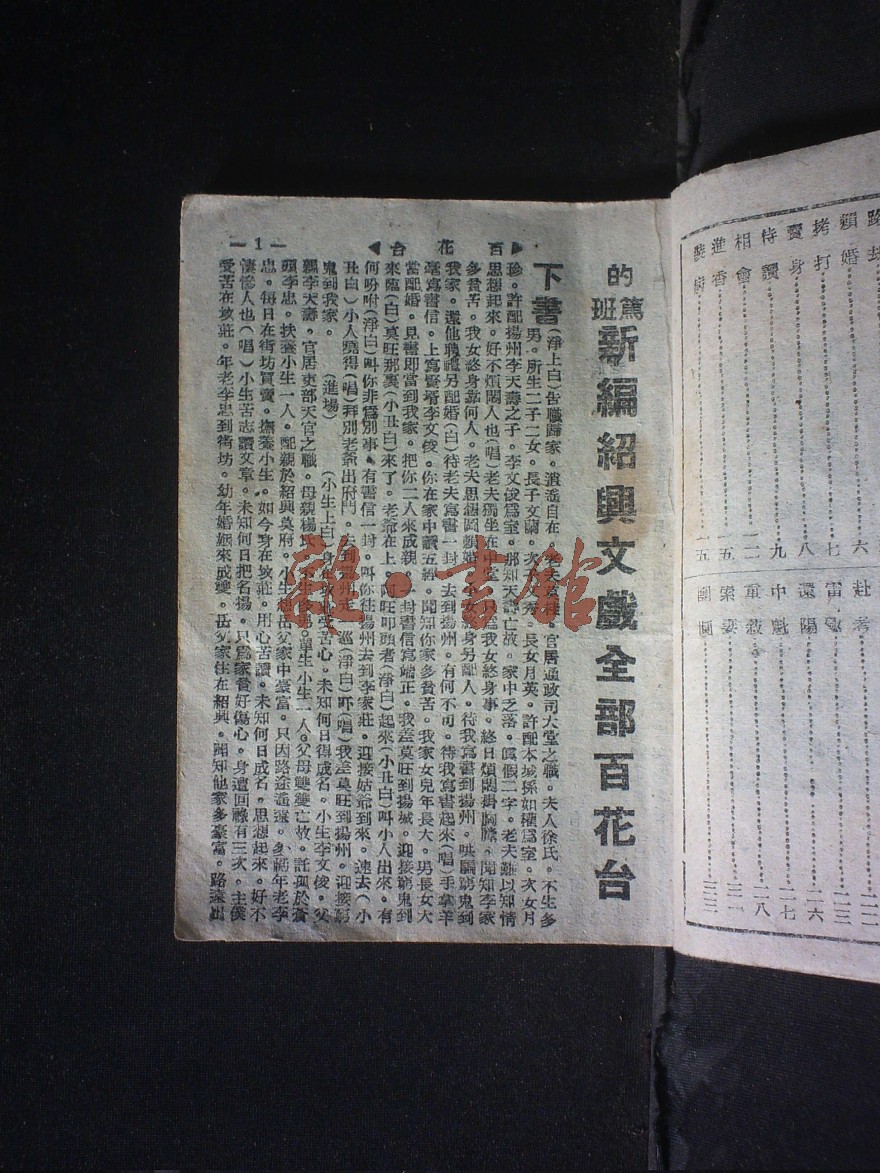 的篤班新編紹興文戲全部百花台
下書
(淨上白)告職歸家。逍遙自在。老夫莫 官居通政司大堂之職。夫人徐氏。不生多
男。所生二子二女。長子文蘭。次 秀。長女月英。許配本城孫如權爲室。次女月
珍。許配揚州李天壽之子。李文俊爲室。那知天壽亡故。家中乏落。眞假二字。老夫難以知情
思想起來。好不煩悶人也(唱)老夫獨坐在中堂。只爲我女終身事。終日煩悶掛胸膛。聞知李家
多貧苦。我女終身靠何人。老夫思想 賴婚 女身另配人。待我寫書到揚州。哄騙窮鬼到
我家。還他聘禮另配婚(白)待老夫寫書一封。去到揚州。有何不可。待我寫書起來(唱)手拿羊
毫寫書信。上寫賢壻李文俊。你在家中讀五經。聞知你家多貧苦。我家女兒年長大。男長女大
當配婚。見書即當到我家。把你二人來成親。一封書信寫端正。我差莫旺到揚城。迎接窮鬼到
來臨(白)莫旺那裏(小丑白)來了。老爺在上。 旺叩頭者(淨白)起來(小丑白)叫小人出來。有
何吩咐(淨白)叫你非爲別事。有書信一封。叫你往揚州去到李家莊。迎接姑爺到來。速去(小
丑白)小人曉得(唱)拜別老爺出府門。去到揚州走一巡(淨白)吓(唱)我差莫旺到揚州。迎接窮
鬼到我家。 (進場) (小生上白)身 受苦心。未知何日得成名。小生李文俊。父
親李天壽。官居吏部天官之職。母親楊氏。不生多男。單生小生一人。父母雙雙亡故。託孤於蒼
頭李忠。扶養小生一人。配親於紹興莫府。小生想岳父家中豪富。只因路途遙遠。多 年老李
忠。每日在街坊買賣。撫養小生。如今身在坟莊。用心苦讀。未知何日成名。思想起來。好不
悽慘人也(唱)小生苦志讀文章。未知何日把名揚。只爲家貧好傷心。身遭回祿有三次。主僕
受苦在坟莊。年老李忠到街坊。幼年婚姻來成雙。岳父家住在紹興。聞知他家多豪富。路遠出
▶百花台◀
—1—
龍·書館
賴婚 六
拷打 七
賣身 八
待讀 九
相會 一二
進香 一五
一五
赴考
雷 二三
還陽 二六
中魁 二七
重救 二八
索妻 三一
團圓 三三